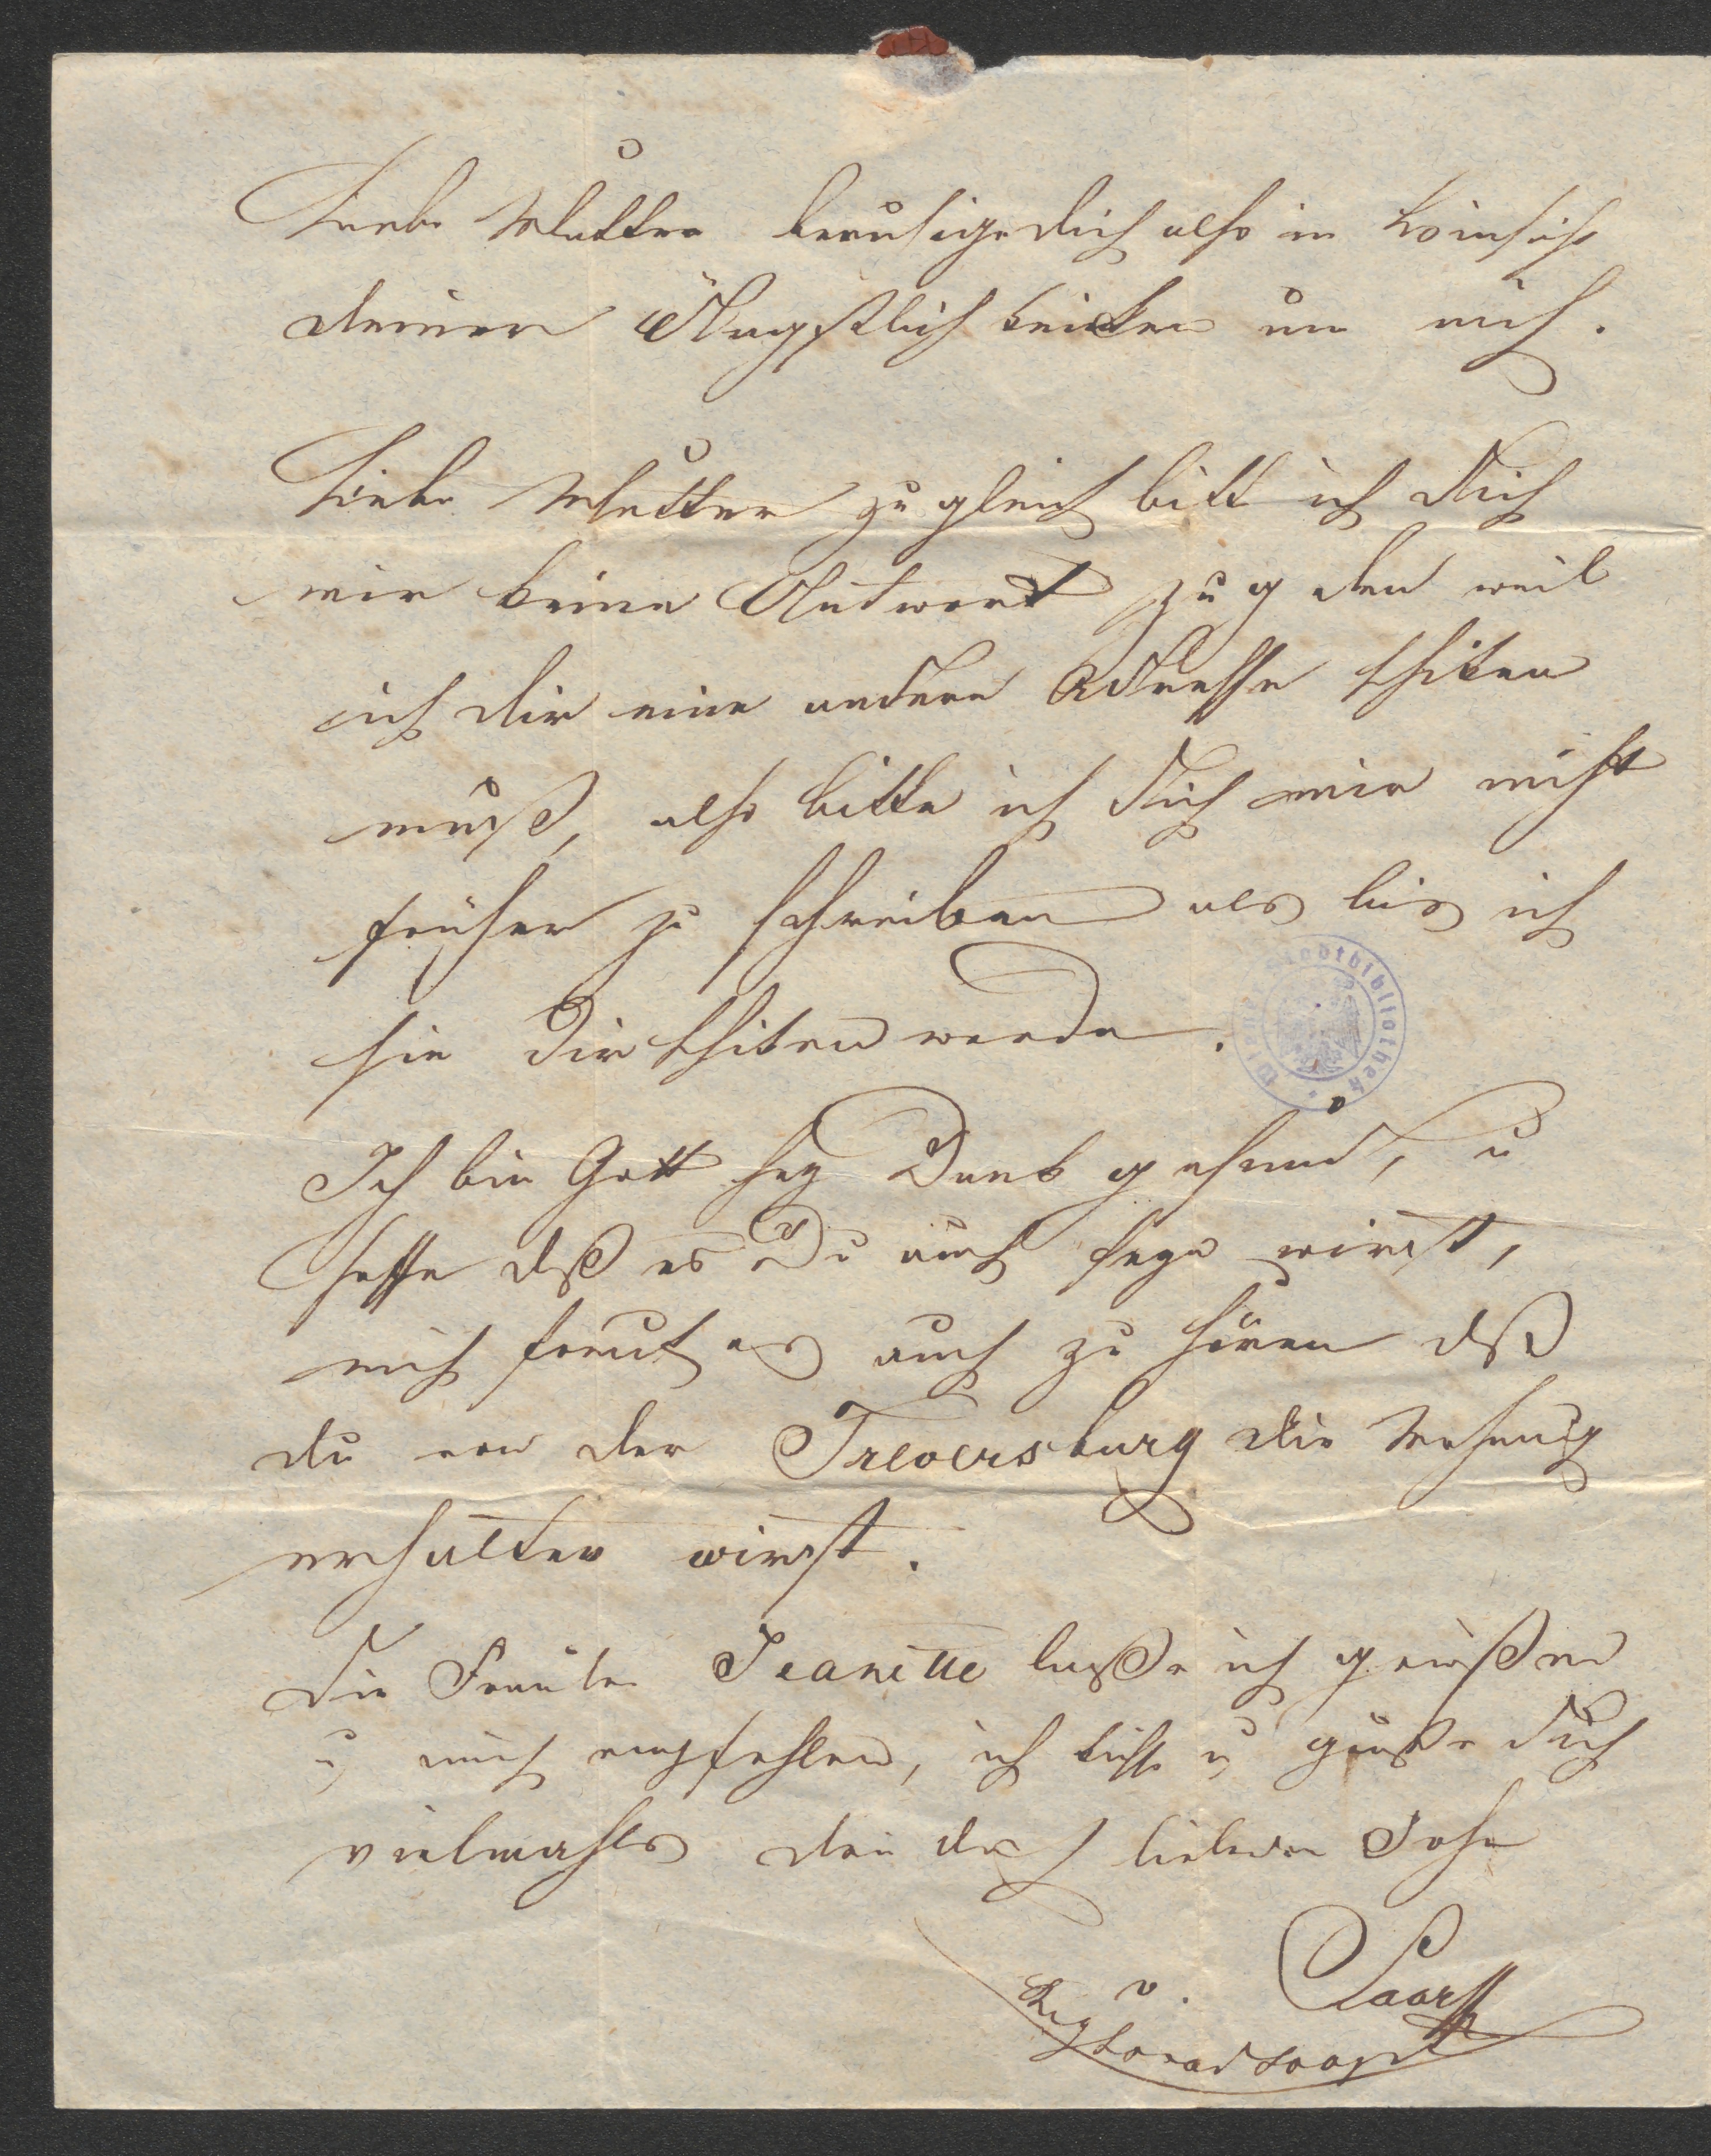 Liebe Mutter beruhige dich also in Hinsicht
deiner Ängstlichkeiten um mich.
Liebe Mutter zugleich bitt ich dich
mir keine Antwort zu geben weil
ich dir eine andere Adresse schiken
muß, also bitte ich dich mir nicht
früher zu schreiben als bis ich
sie dir schiken werde.
Ich bin Gott sey Dank gesund, u
hoffe dß es Du auch seyn wirst,
mich freut es auch zu hören dß
du von der die
erhalten wirst.
Die Jeanette lasse ich grüßen
u mich empfehlen, ich küsse u grüße dich
vielmahls dein dich liebender Sohn
v. Saar
Stadtbibliothek